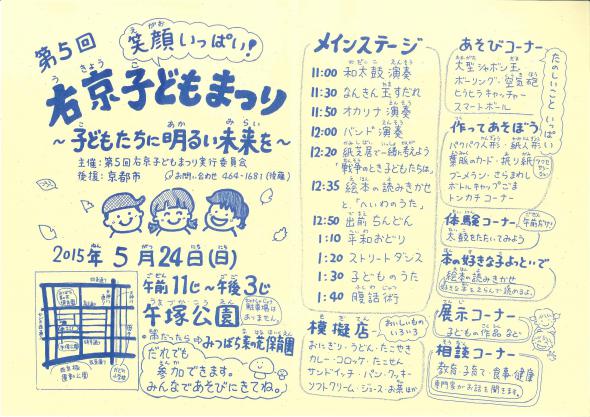 第5回
笑顔いっぱい!
右京子どもまつり
～子どもたちに明るい未来を～
主催:第5回右京子どもまつり実行委員会
後援:京都市
お問い合わせ 464-1681(後藤)
2015年5月24日(日)
ごぜん ごご
午前11じ～午後3じ
午塚公園
駐車場はありません。
雨だったら みつばち菜の花保育園
だれでも
参加できます。
みんなであそびにきてね。
メインステージ
11:00 和太鼓演奏
11:30 なんきん玉すだれ
11:50 オカリナ演奏
12:00 バンド演奏
12:20 紙芝居で一緒に考えよう
「戦争のとき子どもたちは」
12:35 絵本の読みきかせ
と、「へいわのうた」
12:50 出前ちんどん
1:10 平和おどり
1:20 ストリートダンス
1:30 子どものうた
1:40 腹話術
模擬店
おいしいもの いろいろ
おにぎり・うどん・たこやき
カレー・コロッケ・たこせん
サンドイッチ・パン・クッキー
ソフトクリーム・ジュース・お茶ほか
あそびコーナー
たのしいこといっぱい
大型シャボン玉
ボーリング・空気砲
ヒラヒラキャッチャー
スマートボール
作ってあそぼう
パクパク人形・紙人形
葉脈のカード・折り紙
ブーメラン・さらまわし
ボトルキャップごま
トンカチコーナー
体験コーナー
午前だけ!
太鼓をたたいてみよう
本の好きな子よっといで
絵本の読みきかせ
好きな本をえらんで読めるよ。
展示コーナー
子どもの作品など
相談コーナー
教育・子育て・食事・健康
専門家がお話を聞きます。